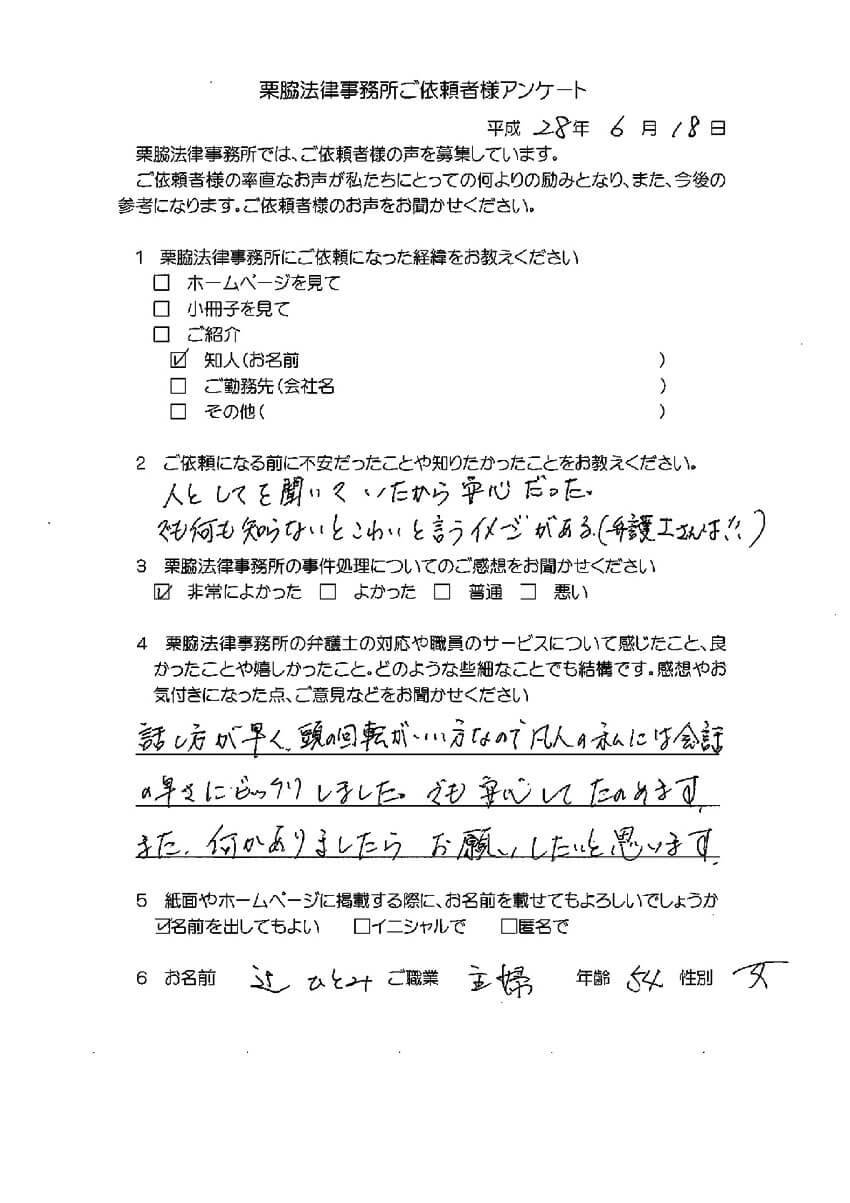 栗脇法律事務所ご依頼者様アンケート
平成 28年 6月 18日
栗脇法律事務所では、ご依頼者様の声を募集しています。
ご依頼者様の率直なお声が私たちにとっての何よりの励みとなり、また、今後の
参考になります。ご依頼者様のお声をお聞かせください。
1 栗脇法律事務所にご依頼になった経緯をお教えください
□ ホームページを見て
□ 小冊子を見て
□ ご紹介
☑ 知人(お名前 )
□ ご勤務先(会社名 )
□ その他( )
2 ご依頼になる前に不安だったことや知りたかったことをお教えください。
人として を聞いていたから安心だった。
でも何も知らないとこわいと言うイメージがある。(弁護士さんは!!)
3 栗脇法律事務所の事件処理についてのご感想をお聞かせください
☑ 非常によかった □ よかった □ 普通 □ 悪い
4 栗脇法律事務所の弁護士の対応や職員のサービスについて感じたこと、良
かったことや嬉しかったこと。どのような些細なことでも結構です。感想やお
気付きになった点、ご意見などをお聞かせください
話し方が早く、頭の回転がいい方なので凡人の私には会話
の早さにビックリしました。でも安心してたのめます。
また、何かありましたら お願いしたいと思います。
5 紙面やホームページに掲載する際に、お名前を載せてもよろしいでしょうか
☑名前を出してもよい □イニシャルで □匿名で
6 お名前 辻 ひとみ ご職業 主婦 年齢 54 性別 女